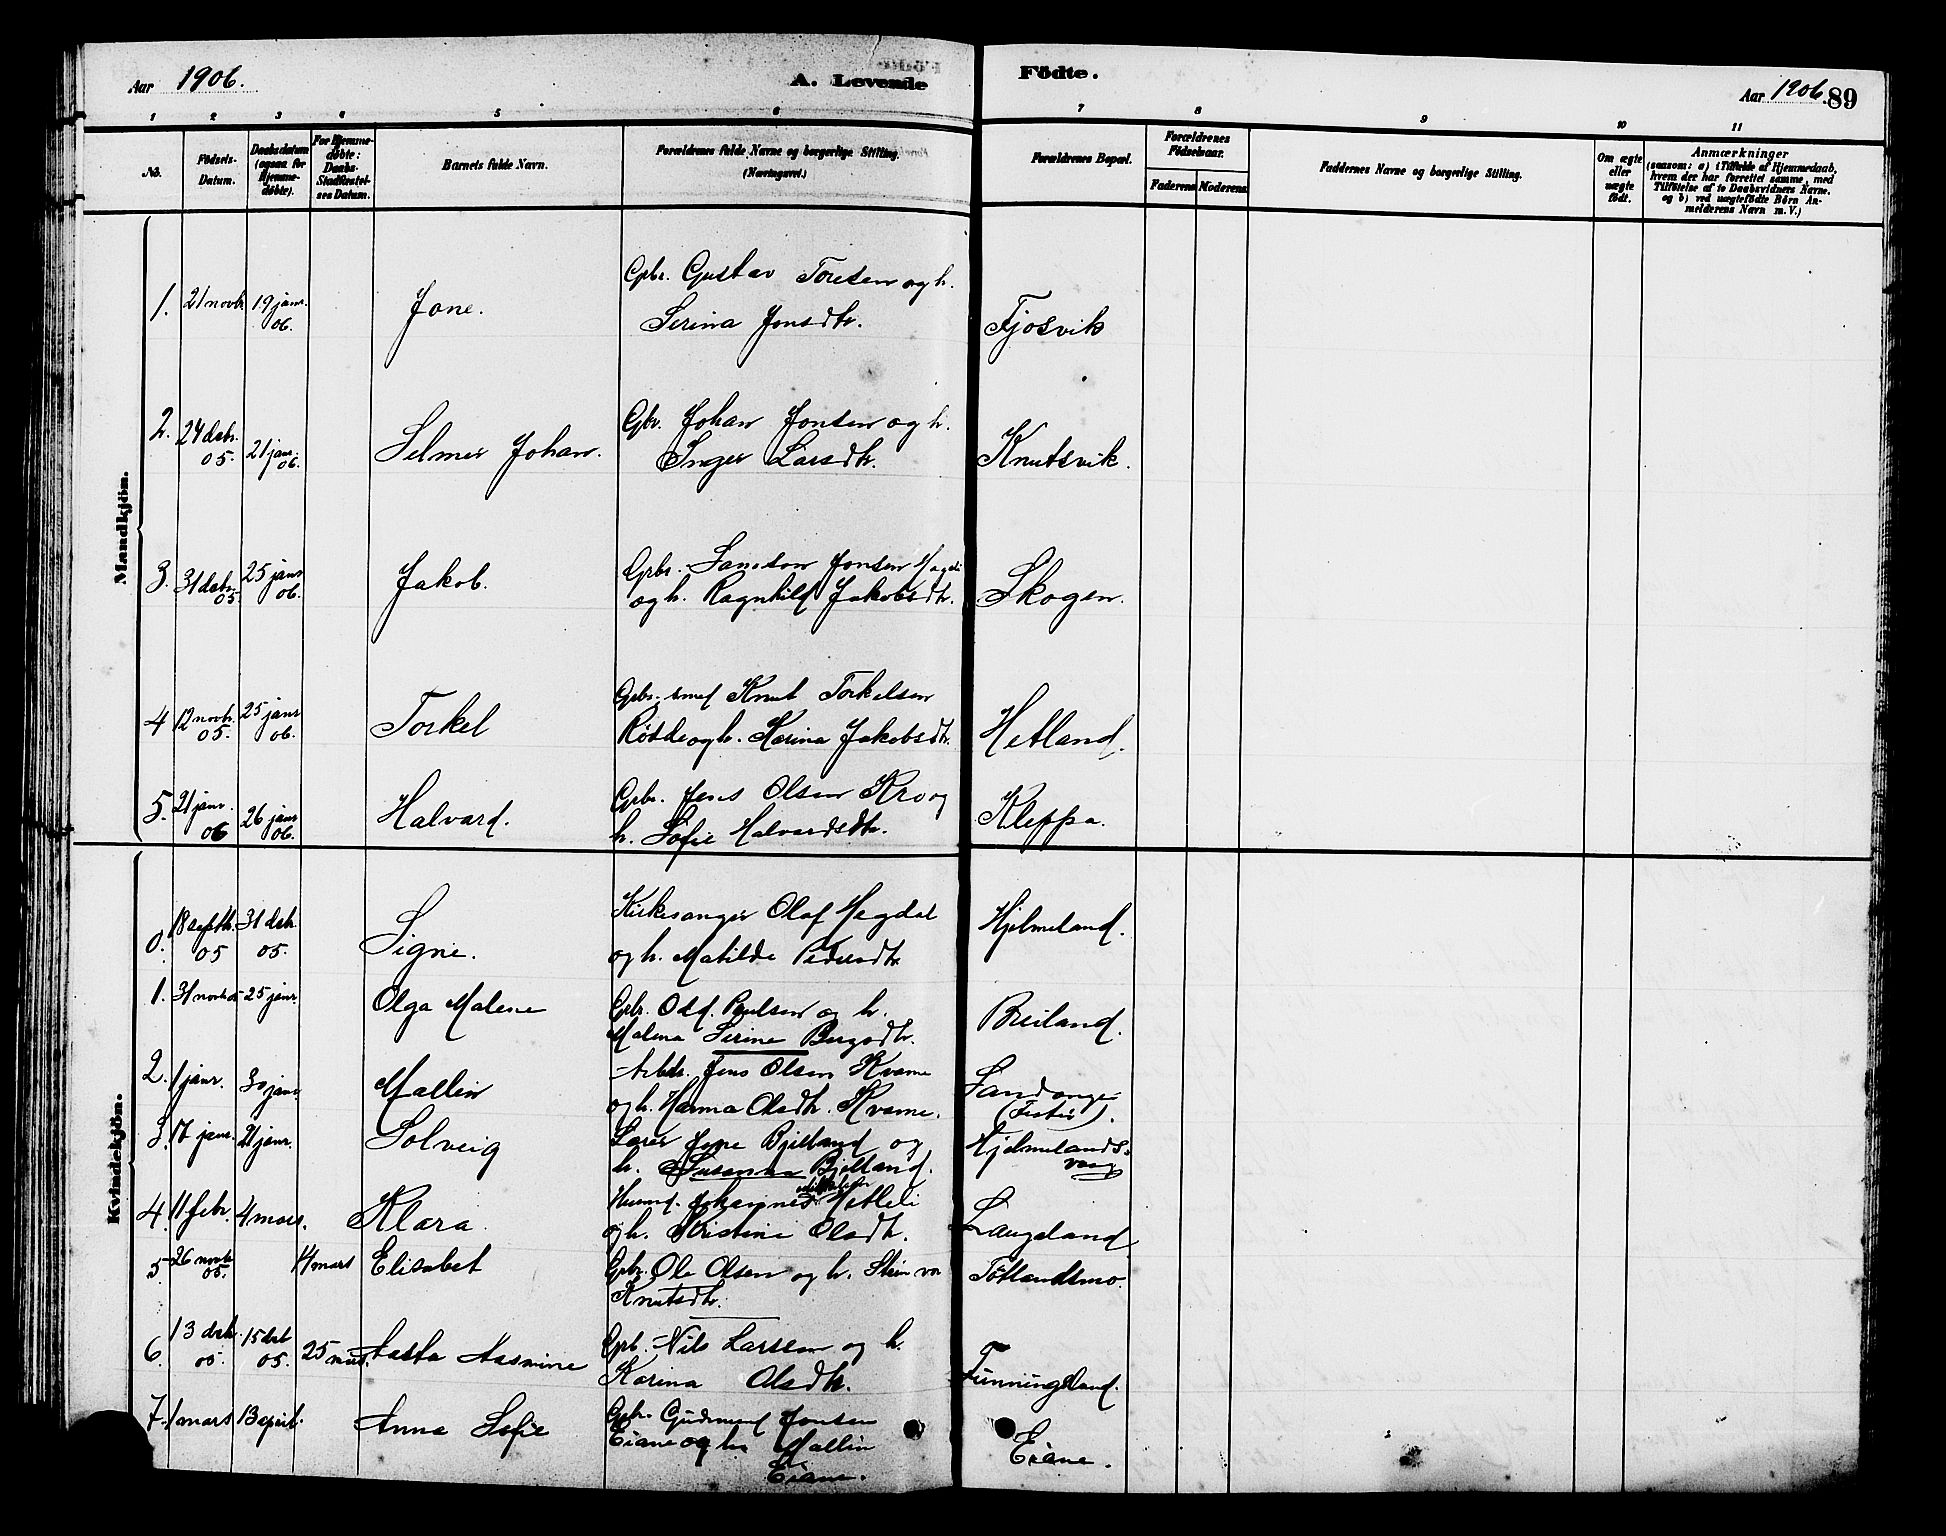 Aar 1906.
A. Levende
Födte.
Aar 1906. 89
1 2 3 4 5 6 7 8 9 10 11
No.
Födsels-Datum.
Daabsdatum (ogsaa for Hjemmedöbte).
For Hjemmedöbte: Daabs-Stadfæstelses Datum.
Barnets fulde Navn.
Forældrenes fulde Navne og borgerlige Stilling. (Næringsvei.)
Forældrenes Bopæl.
Forældrenes Födselsaar.
Faderens Moderens
Faddernes Navne og borgerlige Stilling.
Om ægte eller uægte födt.
Anmærkninger
(saasom: a) i Tilfælde af Hjemmedaab, hvem der har forrettet samme, med Tilföielse af to Daabsvidners Navne, og b) ved uægtefödte Börn Anmelderens Navn m. V.)
Mandkjön.
1. 21 novbr 19 janr. 06. Jone. Gbr. Gustav Toresen og h.
Serina Jonsdtr. Fjosvik
2. 24 dsbr. 05. 21 janr. 06. Selmer Johan. Gbr. Johan Jonsen og h.
Inger Larsdtr. Knutsvik.
3. 31 dsbr. 05. 25 janr 06. Jakob. Gbr. Samson Jonsen
og h. Ragnhild Jakobsdtr. Skogen.
4 12 novbr. 05. 25 janr 06. Torkel Gbr. smed Knut Torkelsen
og h. Karina Jakobsdtr. Hetland.
5. 21 janr. 06 26 janr 06. Halvard. Gbr. Jens Olsen Kro og
h. Sofie Halvardsdtr. Kleppa.
Kvindekjön.
0. 18 septb. 05 31 dsbr. 05. Signe. Kirkesanger Olaf Megdal
og h. Matilde Pedersdtr Hjelmeland.
1. 31 novb 05 25 janr. Olga Malene Gbr. Odd. Paulsen og h.
Malena Serine Bergsdtr. Breiland.
2. 1 janr. 30 janr. Mallin Arbdr. Jens Olsen Kvame
og h. Hanna Olsdtr. Kvame. Sandanger
(Fister).
3. 17 janr. 21 janr. Solveig Lærer Jone Bjelland og
h. Susanna Bjelland. Hjelmelands-
vaag
4. 11 febr. 4 mars. Klara. Husmd. Johannes Metteli
og h. Kristine Olsdtr. Laugeland
5. 26 novbr 05. 14 mars Elisabet Gbr. Ole Olsen og h.
Knutsdtr. Tøtlandsmo.
6. 13 dsbr. 05. 15 dsb 05. 25 mars. Aasta Aasmine Gbr. Nils Larssen og h.
Karina Olsdtr. Funningsland.
7. 1 mars 13 april. Anna Sofie Gbr. Gudmund Jonsen
Eiane og h. Mallin
Eiane. Eiane.